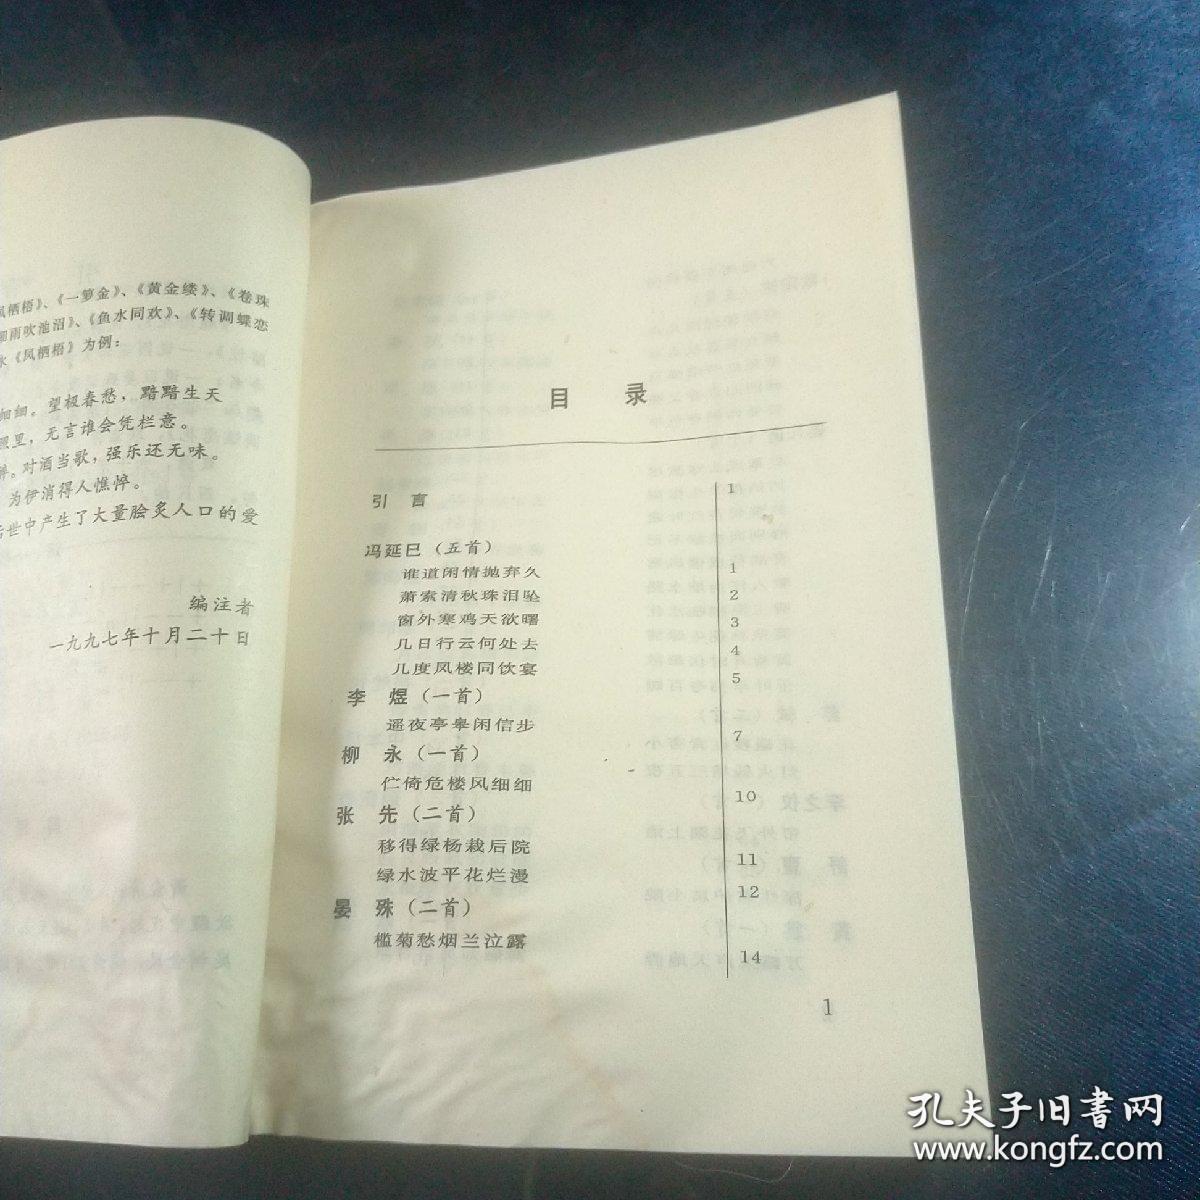 凤栖梧》、《一箩金》、《黄金缕》、《卷珠
雨吹池沼》、《鱼水同欢》、《转调蝶恋
永《凤栖梧》为例：
细细。望极春愁，黯黯生天
照里，无言谁会凭栏意。
醉。对酒当歌，强乐还无味。
为伊消得人憔悴。
世中产生了大量脍炙人口的爱
编注者
一九九七年十月二十日
目 录
引 言 1
冯延巳（五首）
谁道闲情抛弃久 1
萧索清秋珠泪坠 2
窗外寒鸡天欲曙 3
几日行云何处去 4
几度凤楼同饮宴 5
李 煜（一首）
遥夜亭皋闲信步 7
柳 永（一首）
伫倚危楼风细细 10
张 先（二首）
移得绿杨栽后院 11
绿水波平花烂漫 12
晏 殊（二首）
槛菊愁烟兰泣露 14
1
孔夫子旧书网
www.kongfz.com